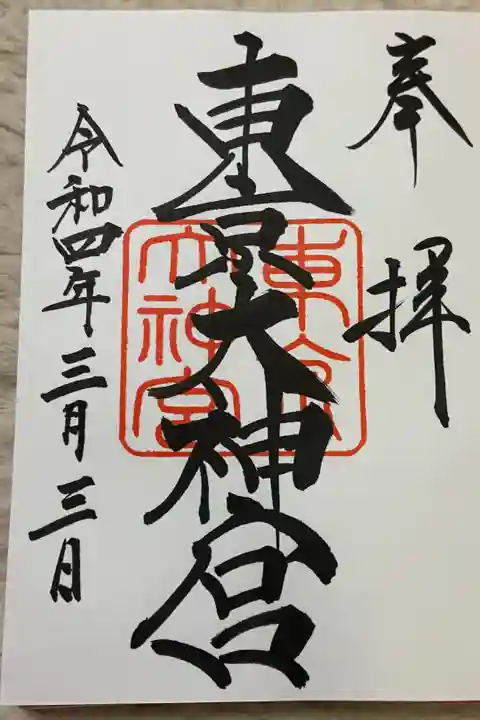 奉拝
東京大神宮
東京
大神宮
令和四年三月三日